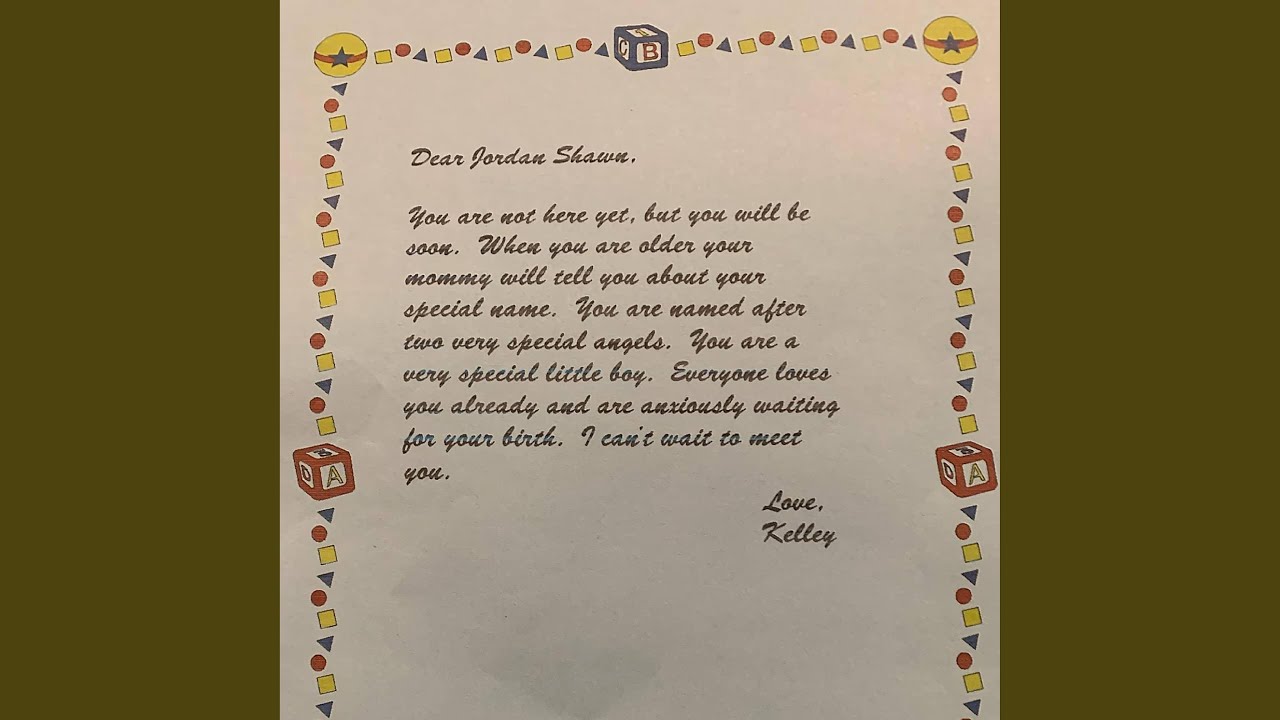 C B
Dear Jordan Shawn,
You are not here yet, but you will be
soon. When you are older your
mommy will tell you about your
special name. You are named after
two very special angels. You are a
very special little boy. Everyone loves
you already and are anxiously waiting
for your birth. I can't wait to meet
you.
A
A
Love,
Kelley